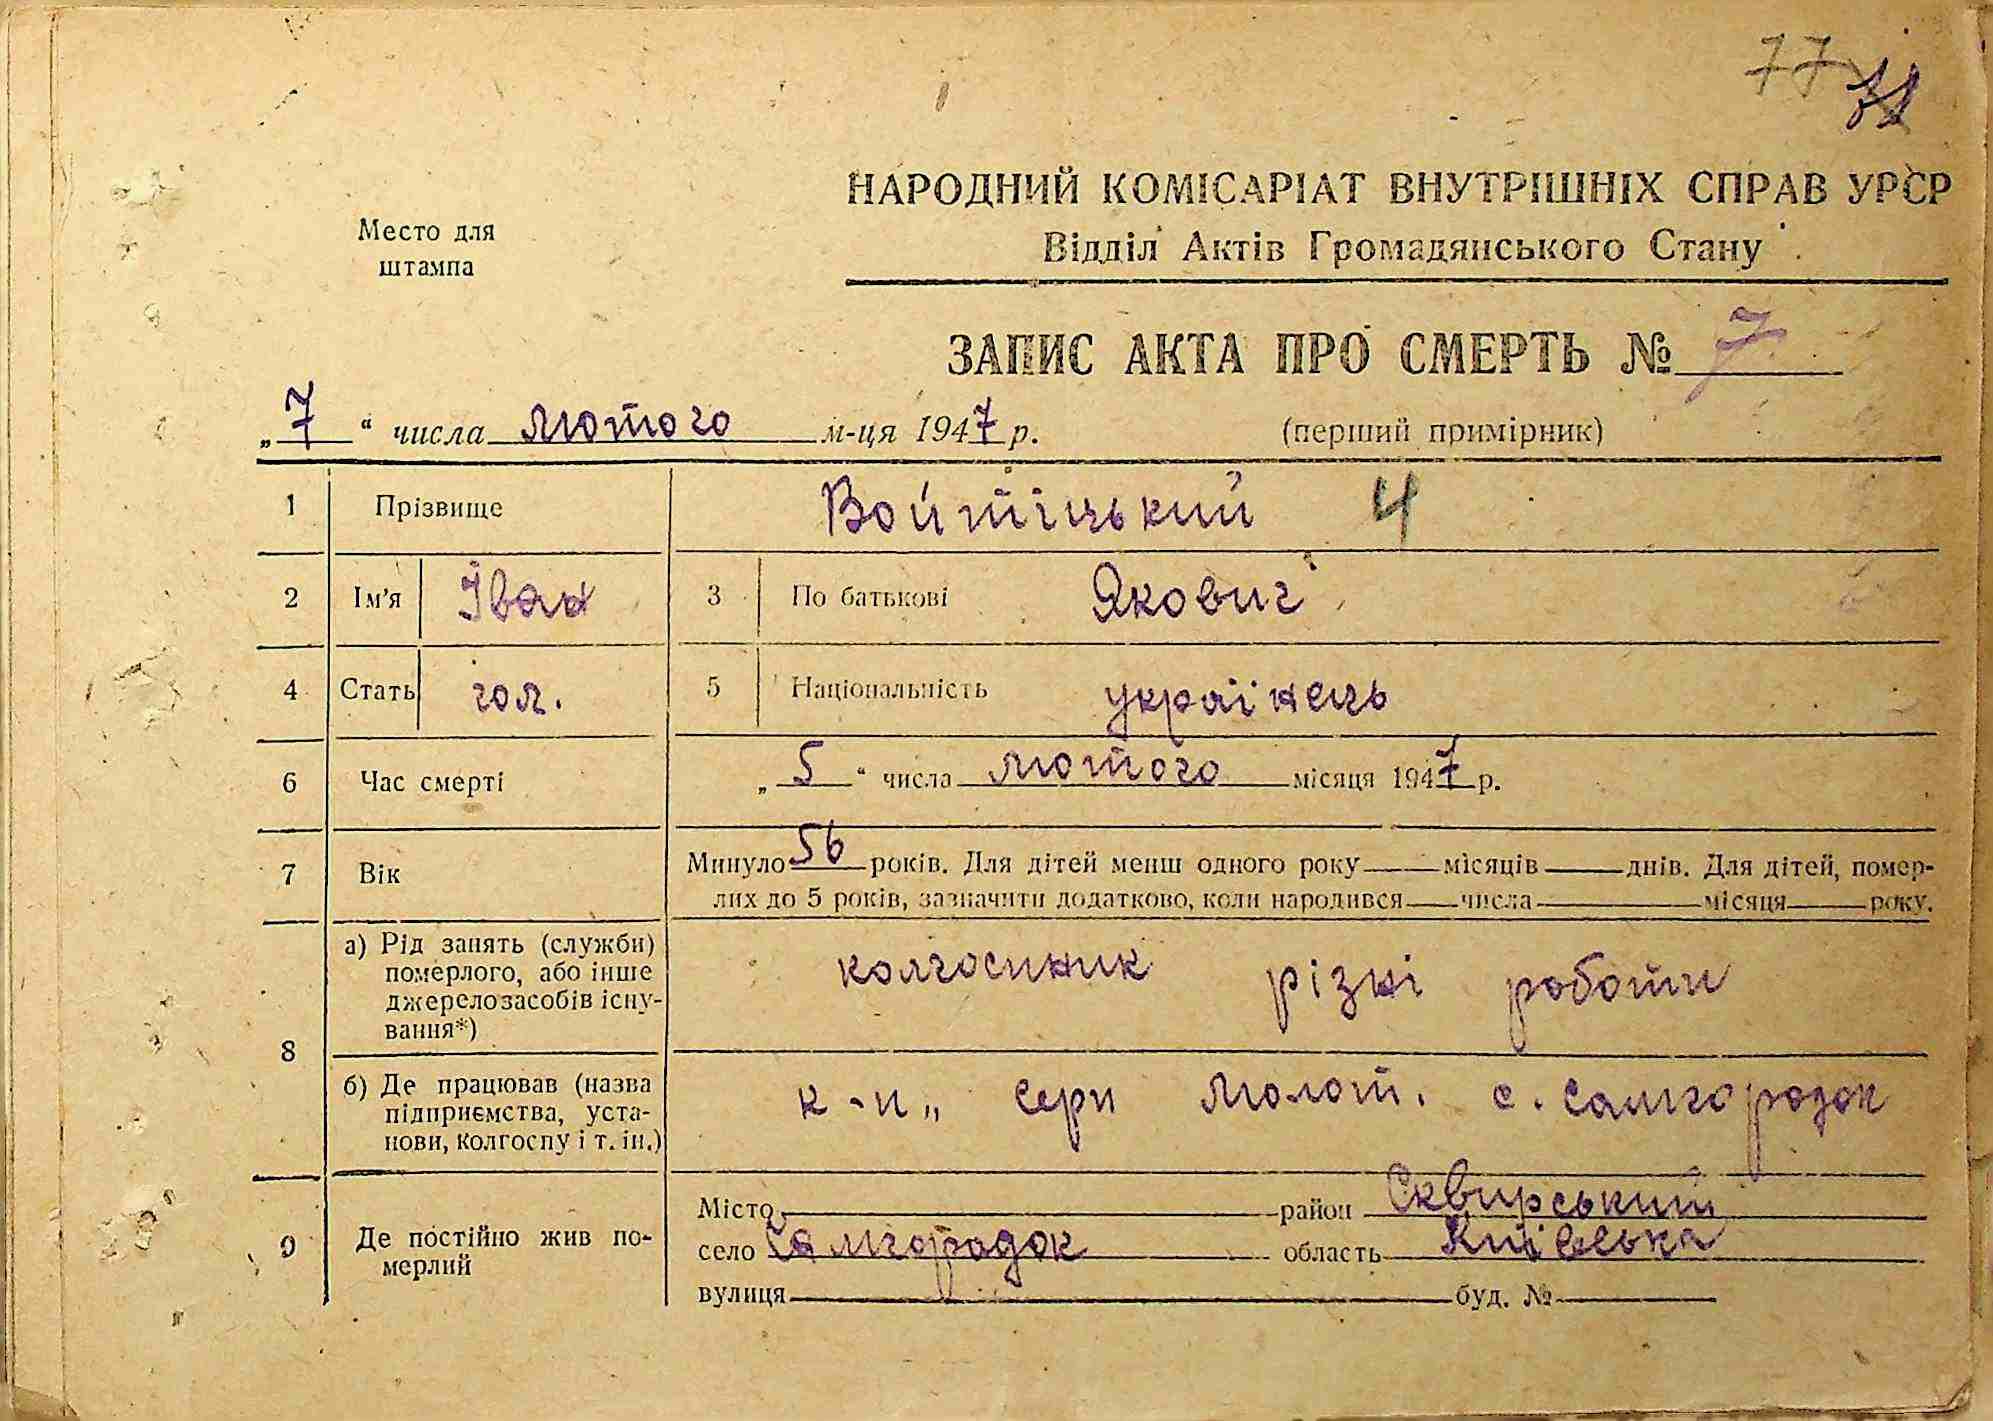 77
Место для
штампа
НАРОДНИЙ КОМІСАРІАТ ВНУТРІШНІХ СПРАВ УРСР
Відділ Актів Громадянського Стану
ЗАПИС АКТА ПРО СМЕРТЬ № 7
„7“ числа лютого м-ця 1947 р. (перший примірник)
1 Прізвище Войтіцький Ч
2 Ім'я Іван 3 По батькові Якович
4 Стать чол. 5 Національність українець
6 Час смерті „5“ числа лютого місяця 1947 р.
7 Вік Минуло 56 років. Для дітей менш одного року — місяців — днів. Для дітей, помер-
лих до 5 років, зазначити додатково, коли народився — числа — місяця — року.
8 а) Рід занять (служби)
померлого, або інше
джерело засобів існу-
вання*)
колгоспник різні роботи
б) Де працював (назва
підприємства, уста-
нови, колгоспу і т. ін.)
к-п „ Серп Молот. с. Самгородок
9 Де постійно жив по-
мерлий
Місто — район Сквирський
село Самгородок область Київська
вулиця — буд. № —